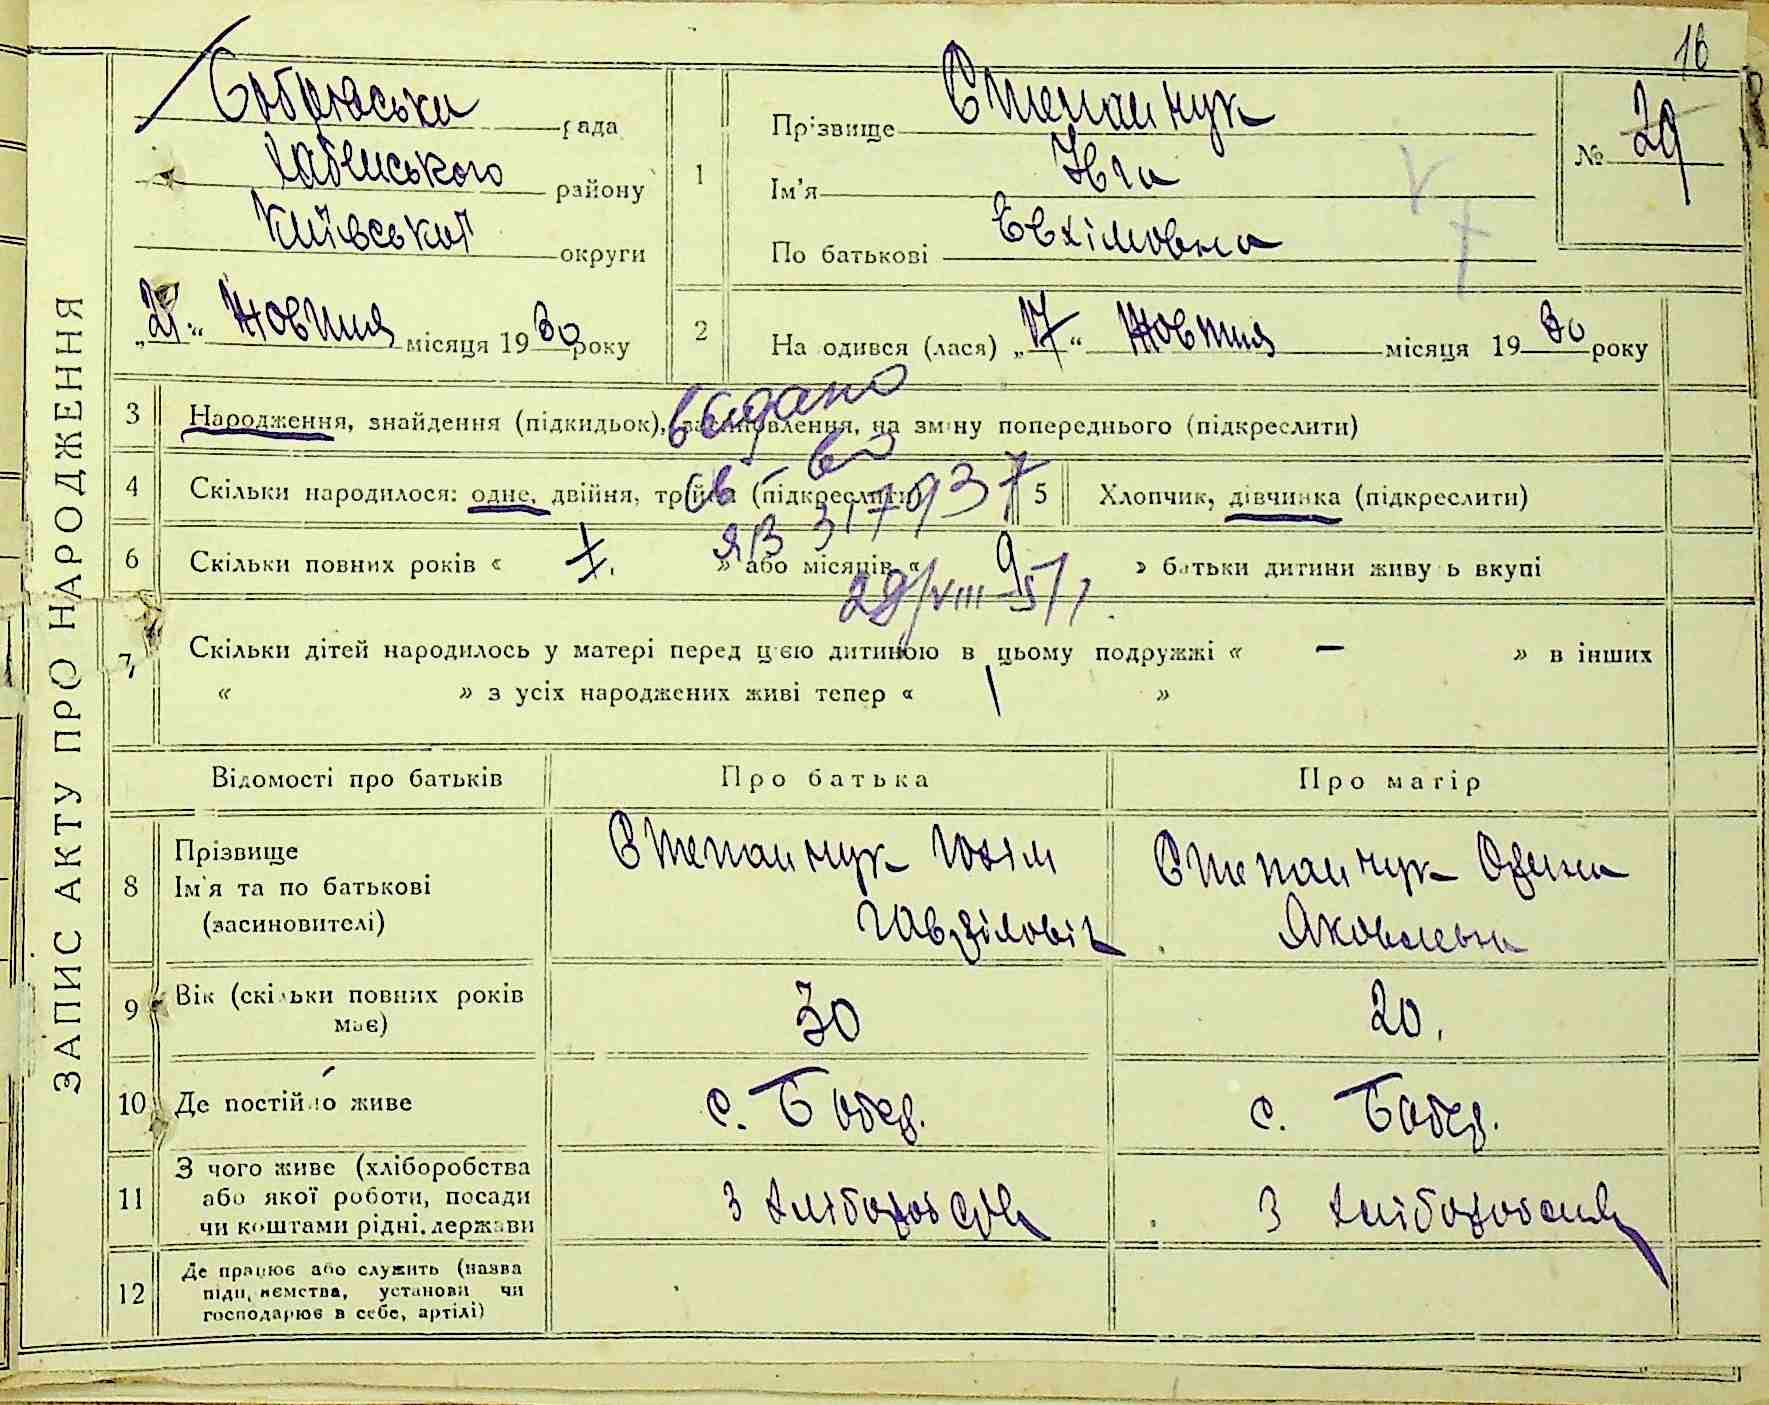 16
ЗАПИС АКТУ ПРО НАРОДЖЕННЯ
рада
району
Київської округи
„21“ Жовтня місяця 1930 року
1 Прізвище Степанчук
Ім'я Ївга
По батькові Евхімовна
№ 29
2 На одився (лася) „17“ Жовтня місяця 1930 року
3 Народження, знайдення (підкидьок), засиновлення, на зміну попереднього (підкреслити)
видано
4 Скільки народилося: одне, двійня, трійня (підкреслити)
св-во
5 Хлопчик, дівчинка (підкреслити)
ЯВ 317937
6 Скільки повних років « 1. » або місяців « 9 » батьки дитини живуть вкупі
29/VIII-51
7 Скільки дітей народилось у матері перед цією дитиною в цьому подружжі « – » в інших
« » з усіх народжених живі тепер « 1 »
Відомості про батьків Про батька Про матір
8 Прізвище Ім'я та по батькові (засиновителі)
Степанчук Юхім Гавріловіч
Степанчук Яковлевна
9 Вік (скільки повних років має) 30 20.
10 Де постійно живе с. Бобер. с. Бобер.
11 З чого живе (хліборобства або якої роботи, посади чи коштами рідні, держави
З хліборобства З хліборобства
12 Де працює або служить (назва підприємства, установи чи господарює в себе, артілі)